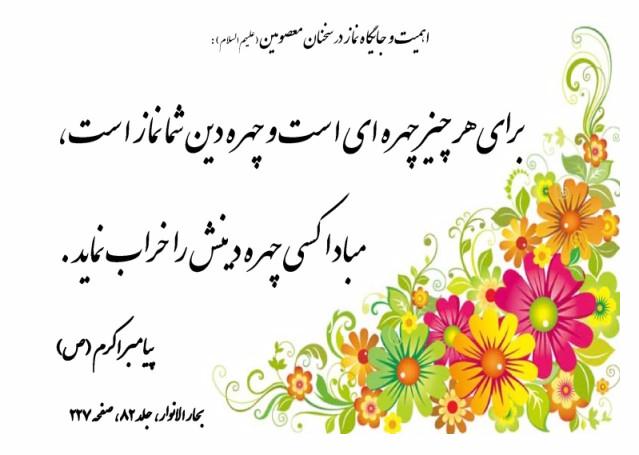 اهمیت و جایگاه نماز در سخنان معصومین (علیهم السلام) :
برای هر چیز چهره ای است و چهره دین شما نماز است،
مبادا کسی چهره دینش را خراب نماید .
پیامبر اکرم (ص)
بحار الانوار، جلد ۸۲، صفحه ۲۲۷